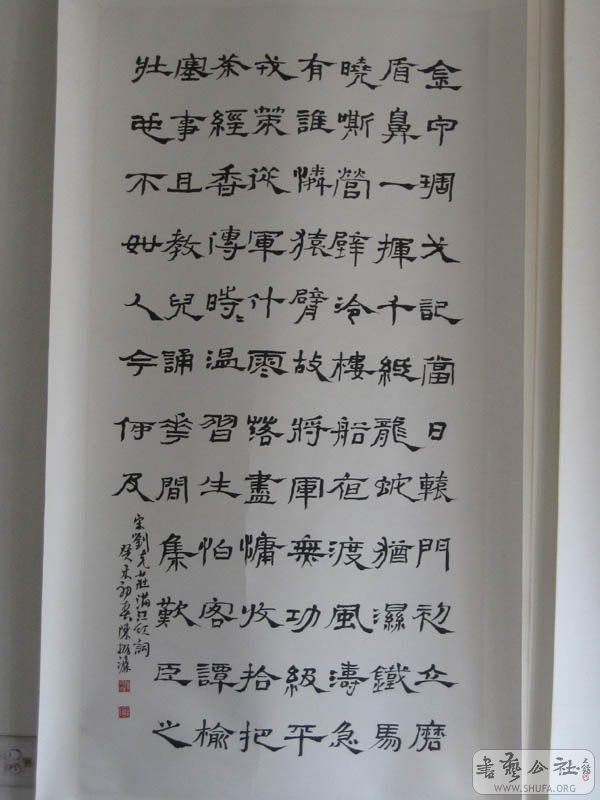 金甲琱戈記當日轅門初立磨
盾鼻一揮千紙龍蛇猶濕鐵馬
曉嘶營壁冷樓船夜渡風濤急
有誰憐猿臂故將軍無功級平
戎策從軍什零落盡慵收拾把
茶經香傳時〻溫習生怕客譚榆
塞事且教兒誦華間集歎臣之
壯也不如人今何及
宋劉克莊滿江紅詞
癸未初春陳振濂
書藝公社
WWW.SHUFA.ORG